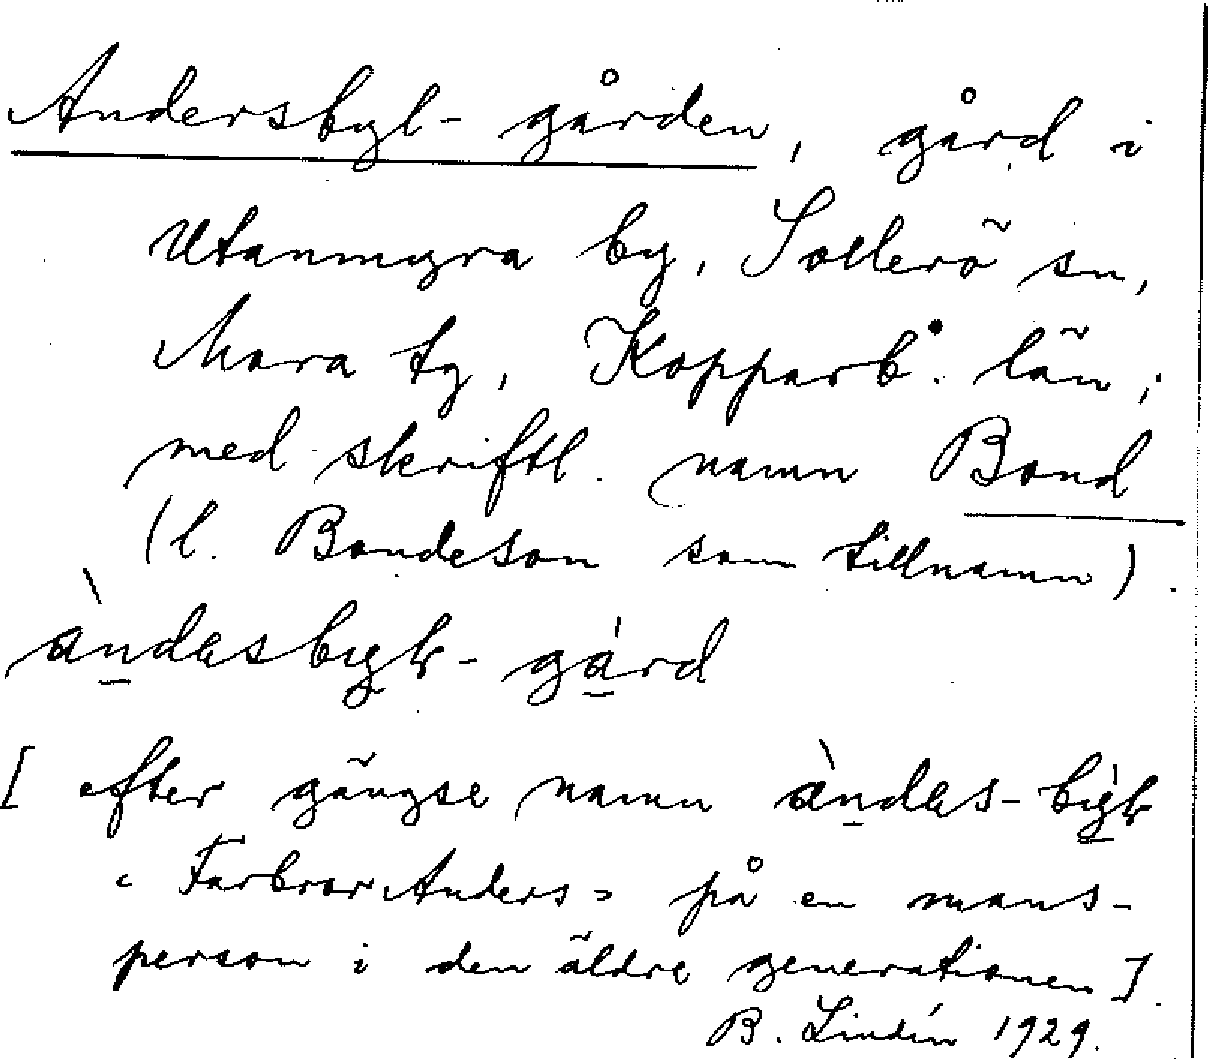 Andersbyl-gården, gård i
Utanmyra by, Sollerö sn,
Mora tg, Kopparb. län;
med skriftl. namn Bond
(l. Bondeson som tillnamn).
àndasbyk-gárd
[efter gängse namn àndas-býk
"Farbror Anders" på en mans-
person i den äldre generationen].
B. Lindén 1929.